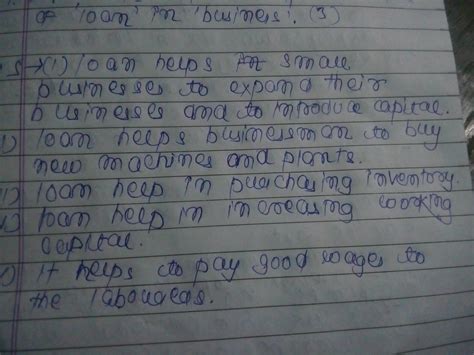 of 'loan' in 'business'. (3)
→(1) loan helps in small
businesses to expand their
businesses and to introduce capital.
loan helps businessman to buy
new machines and plants.
loan help in purchasing inventory.
loan help in increasing working
capital.
It helps to pay good wages to
the labourers.